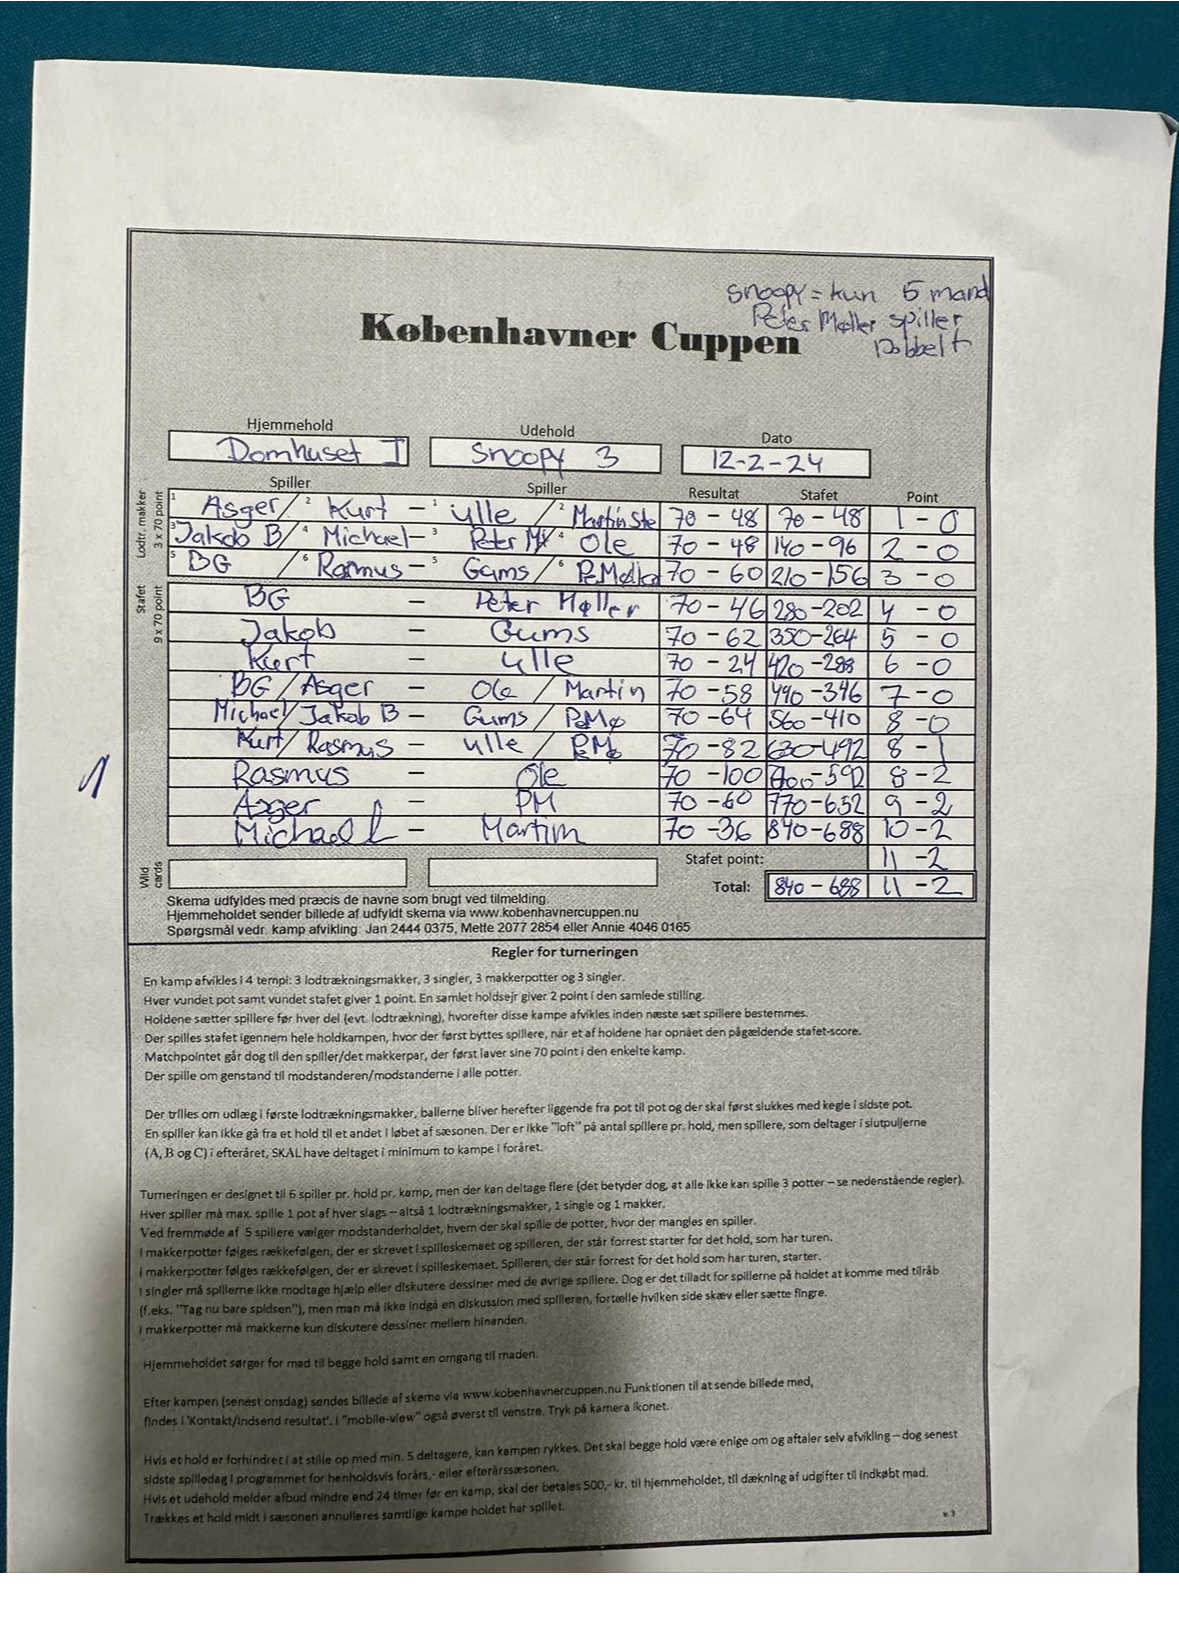 Snoopy = kun 5 mand
Peter Møller spiller
Dobbelt
Københavner Cuppen
Hjemmehold Udehold Dato
Domhuset I Snoopy 3 12-2-24
Spiller Spiller Resultat Stafet Point
Lodtr. makker
3 x 70 point
1 Asger / 2 Kurt - 1 Ulle / 2 Martin Ste 70 - 48 70 - 48 1 - 0
3 Jakob B / 4 Michael - 3 Peter M / 4 Ole 70 - 48 140 - 96 2 - 0
5 BG / 6 Rasmus - 5 Gums / 6 P.Mølle 70 - 60 210 - 156 3 - 0
Stafet
9 x 70 point
BG - Peter Møller 70 - 46 280 - 202 4 - 0
Jakob - Gums 70 - 62 350 - 264 5 - 0
Kurt - Ulle 70 - 24 420 - 288 6 - 0
BG / Asger - Ole / Martin 70 - 58 490 - 346 7 - 0
Michael / Jakob B - Gums / P.Mø 70 - 64 560 - 410 8 - 0
Kurt / Rasmus - Ulle / P.Mø 70 - 82 630 - 492 8 - 1
Rasmus - Ole 70 - 100 700 - 592 8 - 2
Asger - PM 70 - 60 770 - 652 9 - 2
Michael - Martin 70 - 36 840 - 688 10 - 2
Stafet point: 11 - 2
Wild cards
Total: 840 - 688 11 - 2
Skema udfyldes med præcis de navne som brugt ved tilmelding.
Hjemmeholdet sender billede af udfyldt skema via www.kobenhavnercuppen.nu
Spørgsmål vedr. kamp afvikling: Jan 2444 0375, Mette 2077 2854 eller Annie 4046 0165
Regler for turneringen
En kamp afvikles i 4 tempi: 3 lodtrækningsmakker, 3 singler, 3 makkerpotter og 3 singler.
Hver vundet pot samt vundet stafet giver 1 point. En samlet holdsejr giver 2 point i den samlede stilling.
Holdene sætter spillere før hver del (evt. lodtrækning), hvorefter disse kampe afvikles inden næste sæt spillere bestemmes.
Der spilles stafet igennem hele holdkampen, hvor der først byttes spillere, når et af holdene har opnået den pågældende stafet-score.
Matchpointet går dog til den spiller/det makkerpar, der først laver sine 70 point i den enkelte kamp.
Der spille om genstand til modstanderen/modstanderne i alle potter.
Der trilles om udlæg i første lodtrækningsmakker, ballerne bliver herefter liggende fra pot til pot og der skal først slukkes med kegle i sidste pot.
En spiller kan ikke gå fra et hold til et andet i løbet af sæsonen. Der er ikke "loft" på antal spillere pr. hold, men spillere, som deltager i slutpuljerne
(A, B og C) i efteråret, SKAL have deltaget i minimum to kampe i foråret.
Turneringen er designet til 6 spiller pr. hold pr. kamp, men der kan deltage flere (det betyder dog, at alle ikke kan spille 3 potter – se nedenstående regler).
Hver spiller må max. spille 1 pot af hver slags – altså 1 lodtrækningsmakker, 1 single og 1 makker.
Ved fremmøde af 5 spillere vælger modstanderholdet, hvem der skal spille de potter, hvor der mangles en spiller.
I makkerpotter følges rækkefølgen, der er skrevet i spilleskemaet og spilleren, der står forrest starter for det hold, som har turen.
I makkerpotter følges rækkefølgen, der er skrevet i spilleskemaet. Spilleren, der står forrest for det hold som har turen, starter.
I singler må spillerne ikke modtage hjælp eller diskutere dessiner med de øvrige spillere. Dog er det tilladt for spillerne på holdet at komme med tilråb
(f.eks. "Tag nu bare spidsen"), men man må ikke indgå en diskussion med spilleren, fortælle hvilken side skæv eller sætte fingre.
I makkerpotter må makkerne kun diskutere dessiner mellem hinanden.
Hjemmeholdet sørger for mad til begge hold samt en omgang til maden.
Efter kampen (senest onsdag) sendes billede af skema via www.kobenhavnercuppen.nu Funktionen til at sende billede med,
findes i 'Kontakt/Indsend resultat'. I "mobile-view" også øverst til venstre. Tryk på kamera ikonet.
Hvis et hold er forhindret i at stille op med min. 5 deltagere, kan kampen rykkes. Det skal begge hold være enige om og aftaler selv afvikling – dog senest
sidste spilledag i programmet for henholdsvis forårs,- eller efterårssæsonen.
Hvis et udehold melder afbud mindre end 24 timer før en kamp, skal der betales 500,- kr. til hjemmeholdet, til dækning af udgifter til indkøbt mad.
Trækkes et hold midt i sæsonen annulleres samtlige kampe holdet har spillet.
v.3